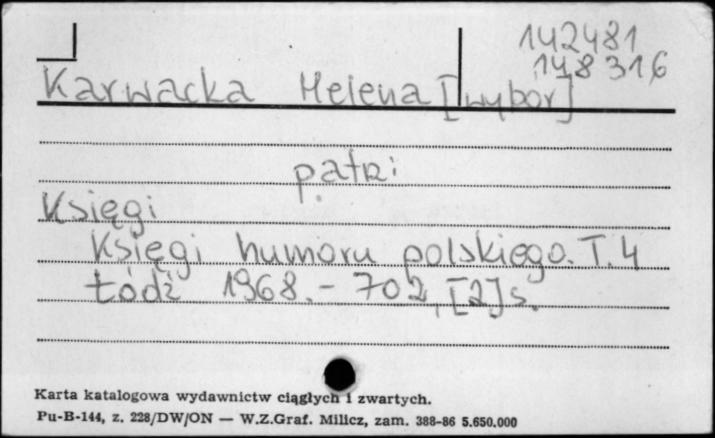 142481
148316
Karwacka Helena [wybór]
patrz:
Księgi
Księgi humoru polskiego. T. 4
Łódź 1968. - 702, [2] s.
Karta katalogowa wydawnictw ciągłych i zwartych.
Pu-B-144, z. 228/DW/ON — W.Z.Graf. Milicz, zam. 388-86 5.650.000